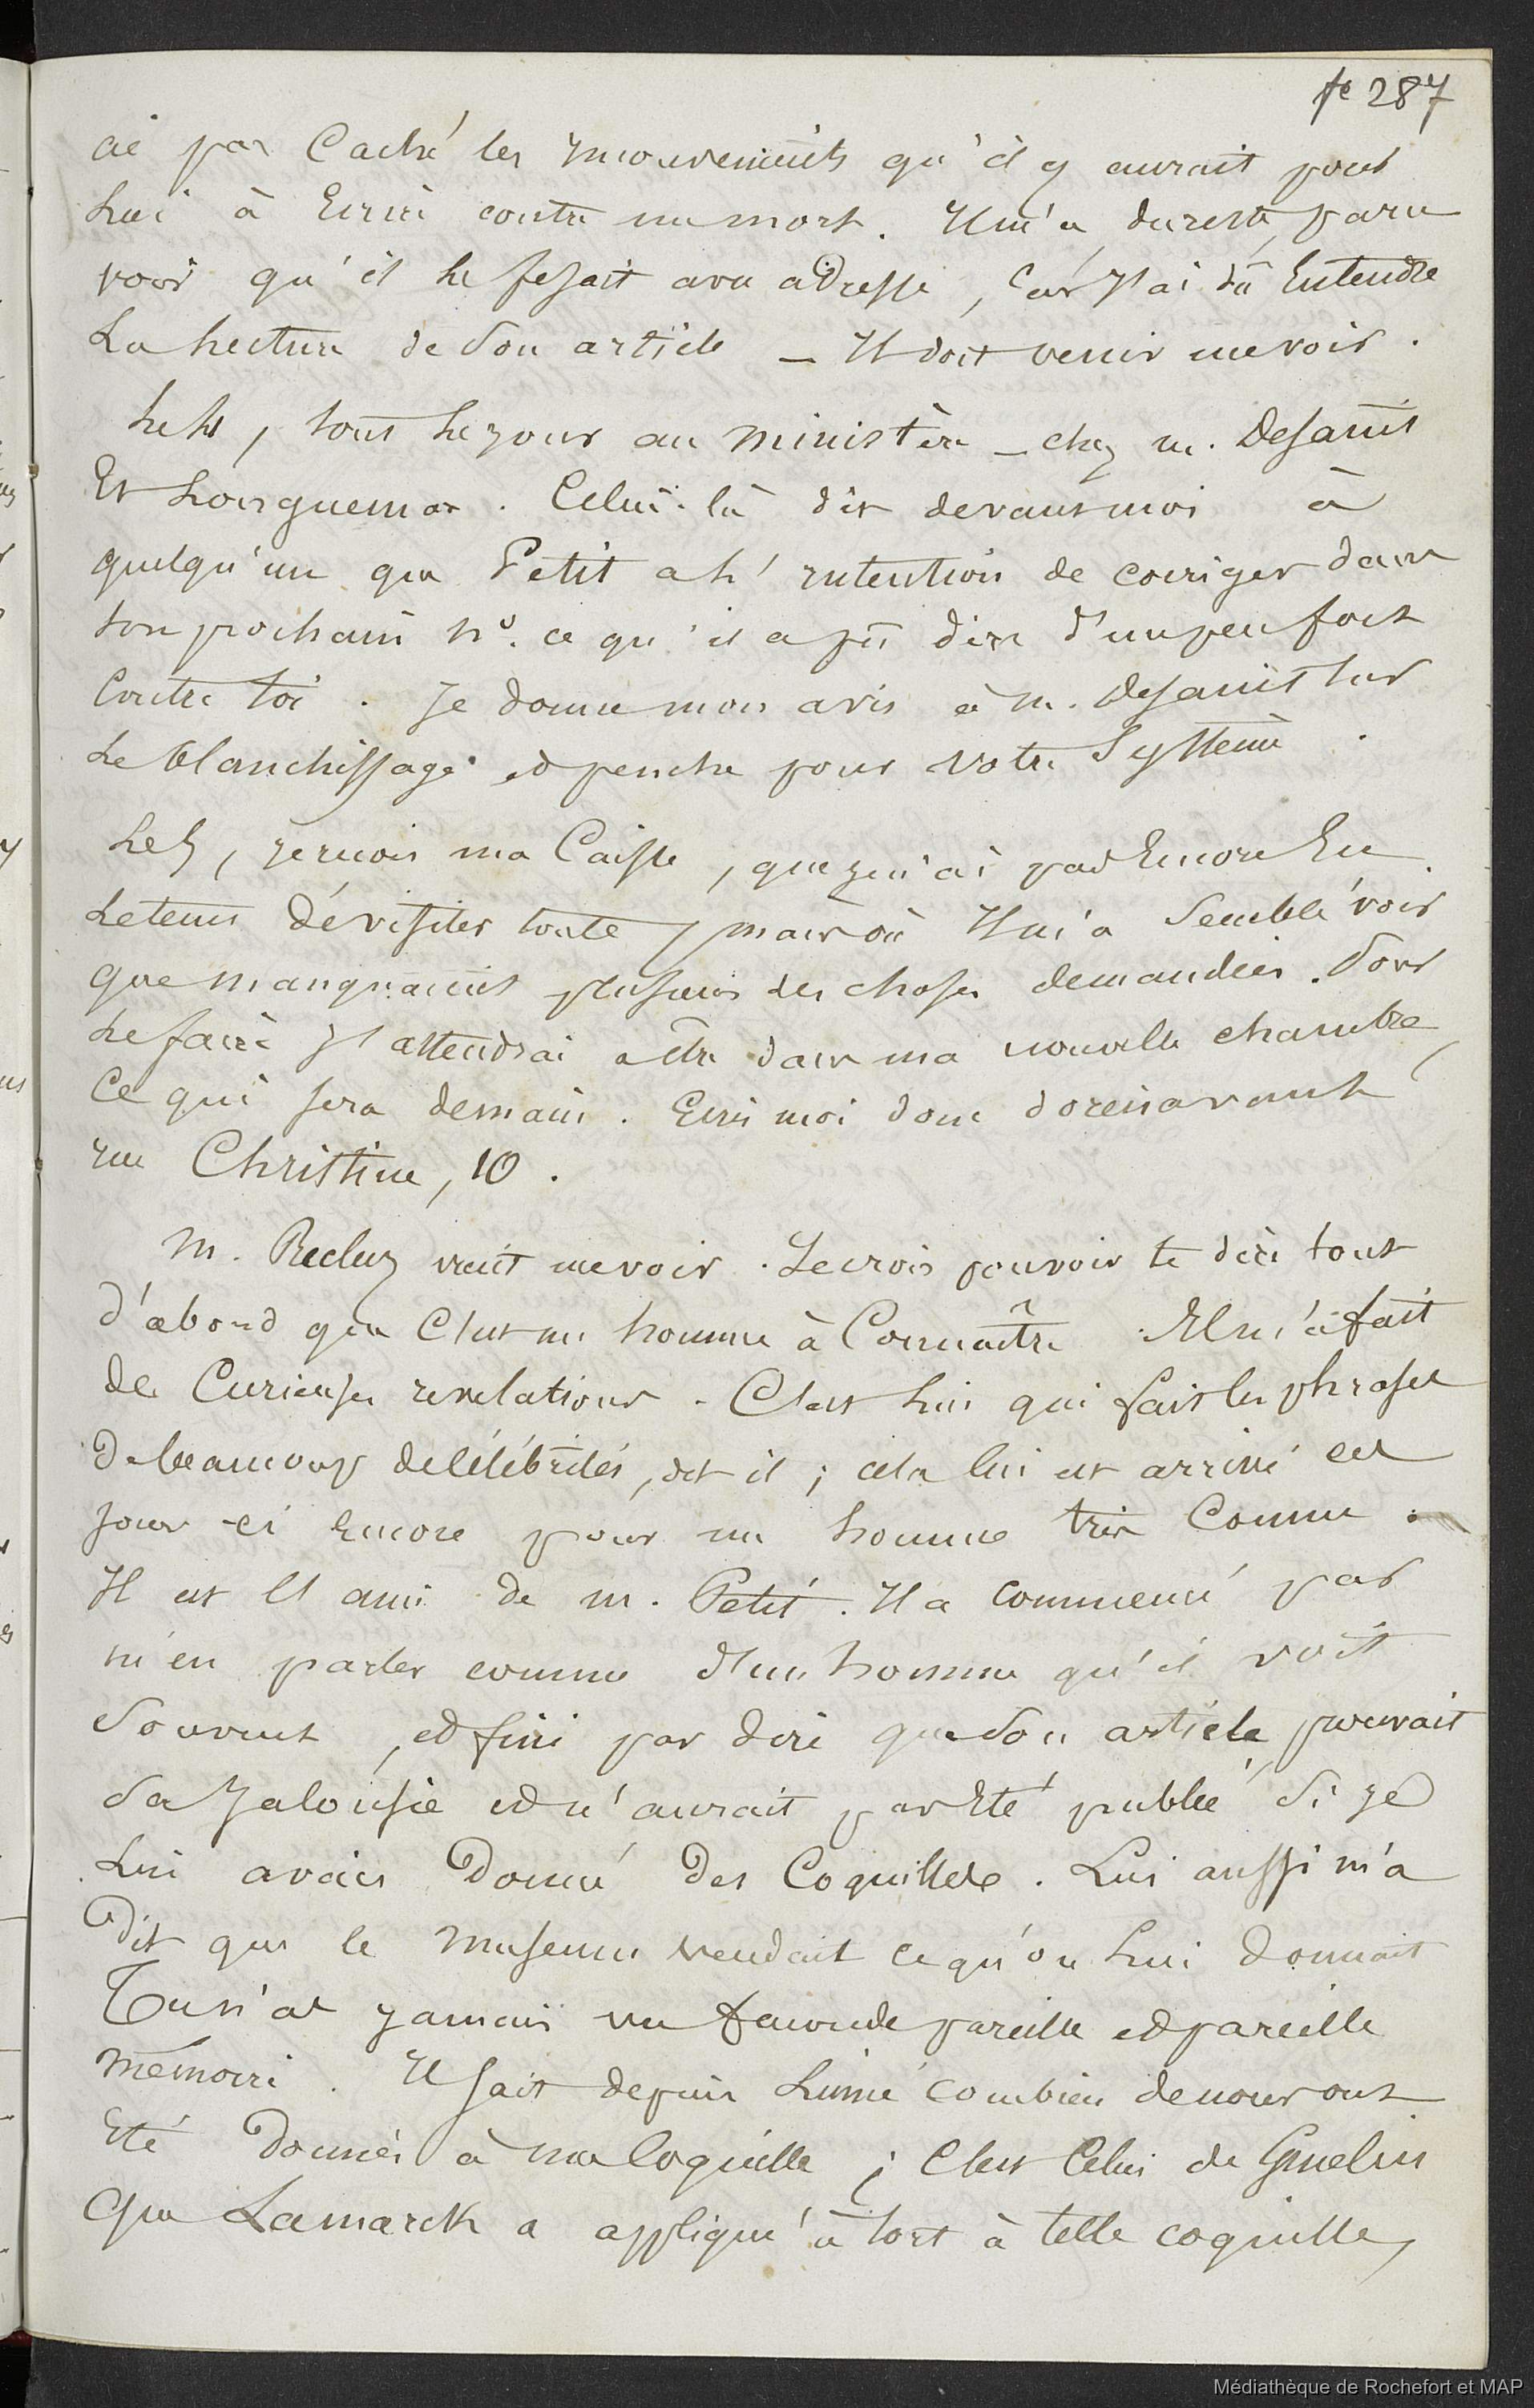 fe 287
ai pas Caché les mouvements qu'il y aurait pour
Lui à Ecrire contre un mort. Il m'a, du reste, paru
voir qu'il le fesait avec adresse, Car J'ai dû Entendre
La Lecture de Son article — Il doit venir me voir.
Le 4, tout le jour au ministère — chez M. Desanis
Et Longuemar. Celui-là dit devant moi à
quelqu'un que Petit a l'intention de corriger dans
son prochain No. ce qu'il a pû dire d'un peu fort
Contre toi. Je donne mon avis à M. Desanis sur
Le blanchissage et penche pour votre Système.
Le 5, je reçois ma Caisse, que je n'ai pas Encore Eu
Le tems de visiter toute, mais où Il m'a Semblé voir
que manquaient plusieurs des choses demandées. Pour
Le faire J'attendrai à être dans ma nouvelle chambre,
Ce qui sera demain. Ecris moi donc dorenavant
rue Christine, 10.
M. Recluz vient me voir. Je crois pouvoir te dire tout
d'abord que C'est un homme à Connaître. Il m'a fait
de Curieuses revelations. C'est Lui qui fait les phrases
De beaucoup de Célébrités, dit il; cela lui est arrivé ces
jours-ci Encore pour un homme très Connu.
Il est L'ami de M. Petit. Il a commencé par
m'en parler comme d'un homme qu'il voit
Souvent, et fini par dire que Son article prouvait
Sa Jalousie et n'aurait pas Eté publié Si je
Lui avais Donné Des Coquilles. Lui aussi m'a
Dit que le Museum vendait ce qu'on Lui donnait
Tu n'as jamais vu faconde pareille et pareille
mémoire. Il sait depuis Linné combien de noms ont
Eté Donnés à une Coquille; C'est Celui de Gmelin
Que Lamarck a appliqué à tort à telle coquille,
Médiathèque de Rochefort et MAP